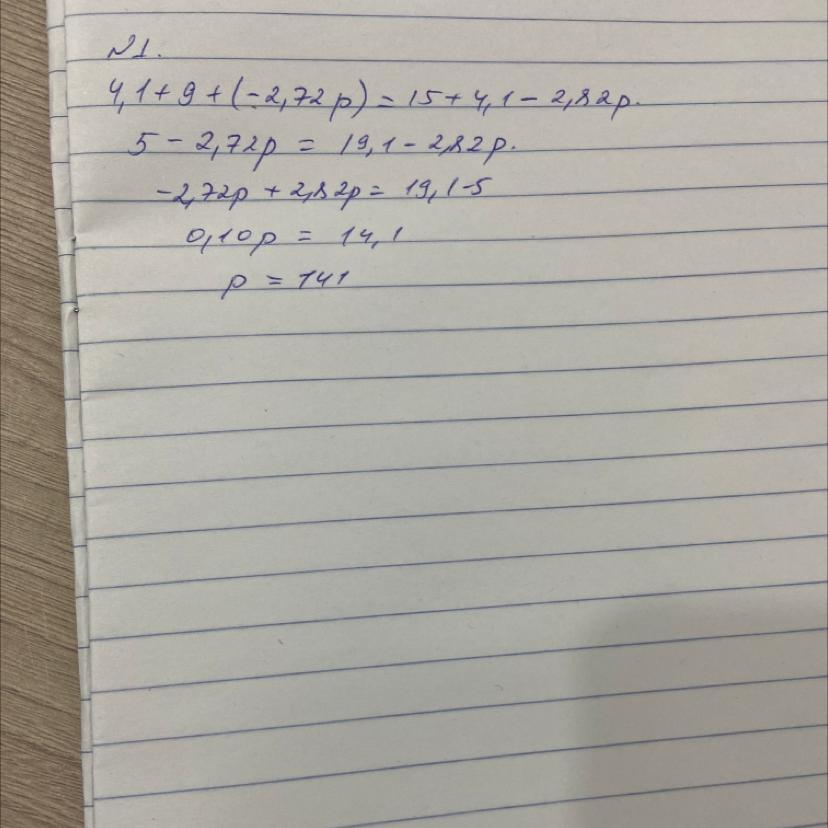 №1.
4,1+9+(-2,72p)=15+4,1-2,82p.
5-2,72p = 19,1-2,82p.
-2,72p+2,82p= 19,1-5
0,10p = 14,1
p = 141